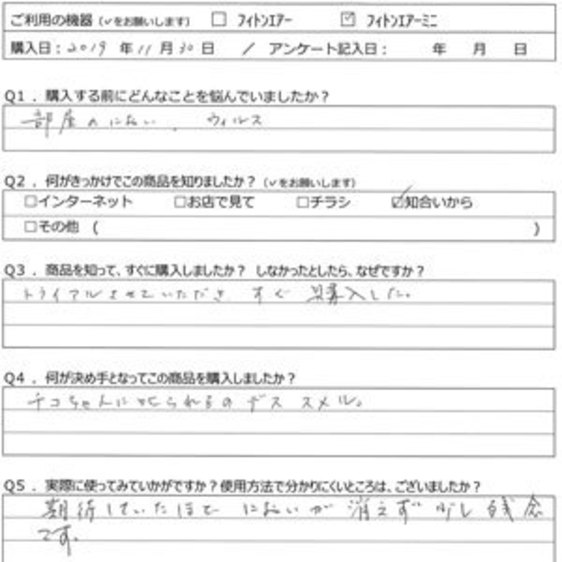 ご利用の機器 (✓をお願いします) □ フィトンエアー ☑ フィトンエアーミニ
購入日:2019 年 11 月 30 日 / アンケート記入日: 年 月 日
Q1.購入する前にどんなことを悩んでいましたか?
部屋のにおい、ウィルス
Q2.何がきっかけでこの商品を知りましたか?(✓をお願いします)
□インターネット □お店で見て □チラシ ☑知合いから
□その他 ( )
Q3.商品を知って、すぐに購入しましたか? しなかったとしたら、なぜですか?
トライアルさせていただき すぐ 購入した。
Q4.何が決め手となってこの商品を購入しましたか?
チコちゃんに叱られるの デス スメル。
Q5.実際に使ってみていかがですか?使用方法で分かりにくいところは、ございましたか?
期待していたほど においが 消えず 少し 残念
です。